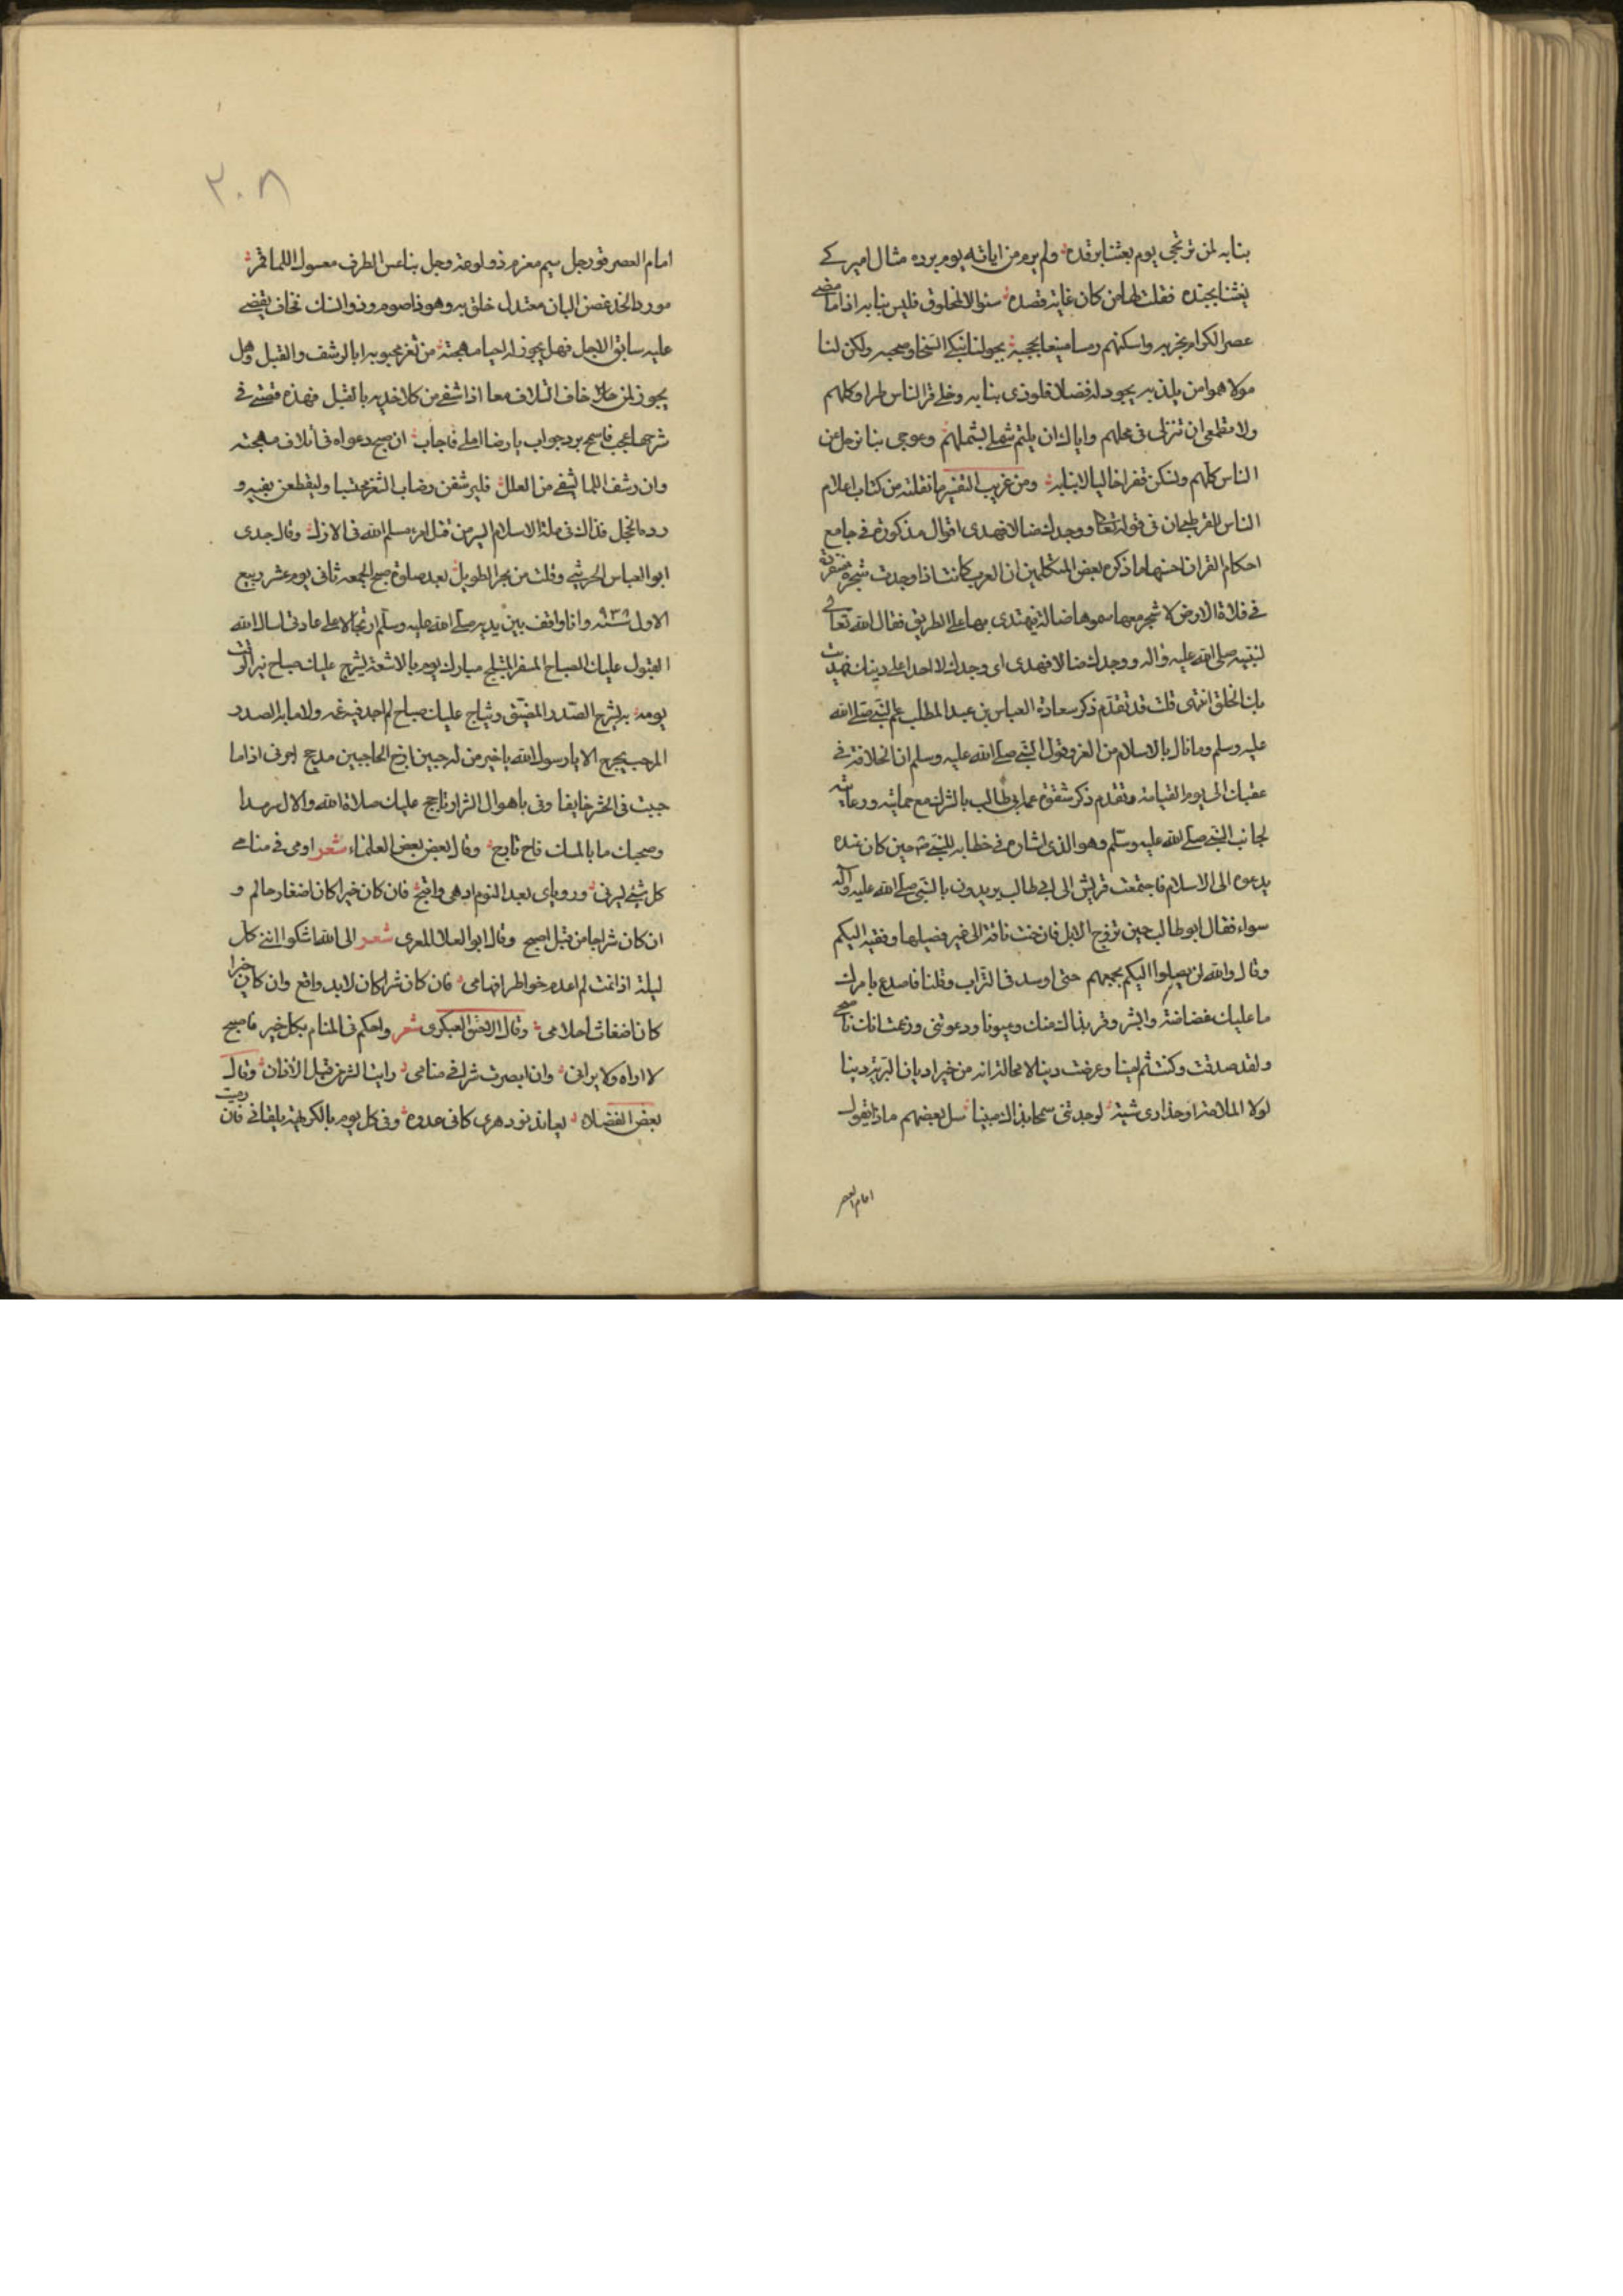 بنا به لمن نرتجى يوم بعثنا برقده ولم يرو من اياته يوم برده مثال امير كے
يغثنا بجنده فقلت لها من كان غاية قصده سئوالا لمخلوق فليس بنا به اذا ما مضى
عصر الكرام بحزبه واسكنهم رمسا منيعا بحجبه يحولنا نبكى السخا وصحبه ولكن لنا
مولا هموا من يلذ به يجود له فضلا فلوذى بنا به وخلى قر الناس طرا وكلهم
ولا مطمعى ان تنزلى فى محلهم واياك ان يلتم شملى بشملهم وعوجى بنا نرحل عن
الناس كلهم ونسكن قفرا خاليا لا بنا به ومن غريب التفسير ما نقلته من كتاب اعلام
الناس للقرطبى ان فى قوله تعالى ووجدك ضالا فهدى اقوال مذكورة فى جامع
احكام القران احسنها ما ذكره بعض المتكلمين ان العرب كانت اذا وجدت شجرة منفردة
فى فلاة الارض لا شجر معها سموها ضالة فيهتدى بها على الطريق فقال الله تعالى
لنبيه صلى الله عليه واله ووجدك ضالا فهدى اى وجدك لا احدا على دينك فهديت
بك الخلق انتهى قلت قد تقدم ذكر سعادة العباس بن عبد المطلب عم النبى صلى الله
عليه وسلم وما نال بالاسلام من العز وقول النبى صلى الله عليه وسلم ان الخلافة فى
عقبك الى يوم القيامة وتقدم ذكر شقوة عمه ابى طالب بالشرك مع حمايته ورعايته
لجانب النبى صلى الله عليه وسلم وهو الذى اشار فى خطابه للنبى ص حين كان عنده
يدعوه الى الاسلام فاجتمعت قريش الى ابى طالب يريدون بالنبى صلى الله عليه وآله
سواء فقال ابو طالب حين تروح الابل فان حنت ناقة الى غير فصيلها دفعته اليكم
وقال والله لن يصلوا اليكم بجمعهم حتى اوسد فى التراب وقلنا فاصدع بامرك
ما عليك غضاضة وابشر وقر بذاك منك وعيونا ودعوتنى وزعمت انك ناصحى
ولقد صدقت وكنت ثم امينا وعرضت دينا لا محالة انه من خير اديان البرية دينا
لولا الملامة او حذارى شبة لوجدتنى سمحا بذاك مبينا سل بعضهم ماذا يقول
امام العصر
٣٠٨
امام العصر فى رجل سيم مغرم ذو لوعة وجل بناعس الطرف معسول اللما ثمر
مورد الخد غصن البان معتدل خلق به وهو ذا صوم وذو انسك تخاف يقضى
عليه سابق الاجل فهل يجوز له احيا مهجته من ثغر محبوبه ابا لرشف والقبل وهل
يجوز لمن خاف التلاف معا اذا شفى من كلا خديه بالقبل فهذه قصتى فى
شرحها عجب فاسمح برد جواب يا رضا املى فاجاب ان صح دعواه فى اتلاف مهجته
وان رشف اللما يشفى من العلل فليرشفن رضاب الثغر محتسبا وليقطعن بغير و
رده الخجل فذاك فى ملة الاسلام ايسر من قتل امرء مسلم الله فى الازل وقال جدى
ابو العباس الحريثى وقلت من بحر الطويل بعد صلوة صبح الجمعه ثانى يوم عشر ربيع
الاول سنه ٩٣٥ وانا واقف بين يديه صلى الله عليه وسلم ارتجالا على عادتى اسال الله
القبول عليك الصباح المسفر المتبلج مبارك يوم بالاشعة ليشرج عليك صباح نير انت
يومه به يشرح الصدر المضيق ويثلج عليك صباح لم احد فيه غمه ولا ما به الصدر
المرحب يحرج الا يا رسول الله يا خير من له جبين ازج الحاجبين مدبج اجرنى اذا ما
جيت فى الحشر خايفا ونى باهوال الشرار تاجج عليك صلاة الله والال سرمدا
وصحبك ما بالمسك فاح نابح وقال بعض بعض العلماء شعر اومى فى منامى
كل شئ يسرنى وروياى بعد النوم ادهى واقبح فان كان خيرا كان اضغاث حالم و
ان كان شرا جا من قبل اصبح وقال ابو العلا المعرى شعر الى الله اشكوا اننى كل
ليلة اذا نمت لم اعدم خواطر افهامى فان كان شرا كان لا بد واقع وان كان خيرا
كان اضغاث احلامى وقال الاحنف العبكرى شعر واحكم فى المنام بكل خير فاصبح
لا اراه ولا يرانى وان ابصرت شرا فى منامى رايت الشر من قبل الاذان وقال
بعض الفضلاء يعاندنى دهرى كانى عدوه وفى كل يوم بالكريهة يلقانى فان رمت